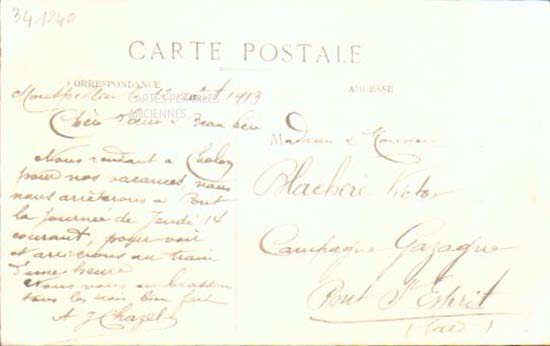 34-1240
CARTE POSTALE
CORRESPONDANCE
ADRESSE
Montpellier le 12 août 1913
CARTES POSTALES
ANCIENNES
Chère Sœur & Beau frère
Nous rendant à
pour nos vacances, nous
nous arrêterons à Pont
la journée de Jeudi 14
courant, pour voir
et arriverons au train
d'une heure
Nous vous embrassons
tous les trois bien fort
A J Chazel
Madame & Monsieur
Blachère Victor
Campagne Gazagne
Pont St Esprit
(Gard)